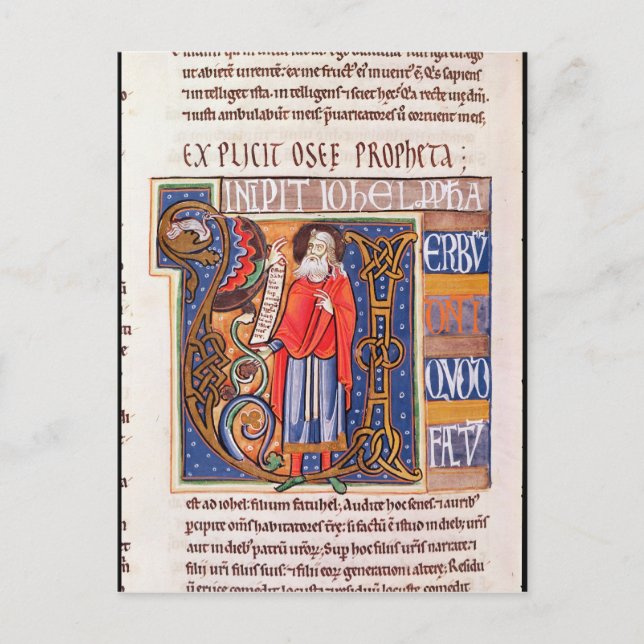 ut abietē uirentē: ex me fruct' ei' inuent' ē; Q's sapiens
⁊ intelliget ista. intelligens ⁊ sciet hęc? Q'a rectę uię dnī.
⁊ iusti ambulabūt in eis. p̄uaricatores ū corruent in eis;
EXPLICIT OSEE PROPHETA;
INCIPIT IOHEL PPHA
ERBŪ
DNI
QVOD
FACTV
est ad iohel: filium fatuhel; Audite hoc senes: ⁊ auribꝰ
percipite om̄s habitatores trę; si factū ē istud in dieb; ur̄is
aut in dieb; patrū ur̄oꝝ; Sup hoc filiis ur̄is narrate: ⁊
filii ur̄i filiis suis: ⁊ filii eoꝝ generationi alterę; Residuū